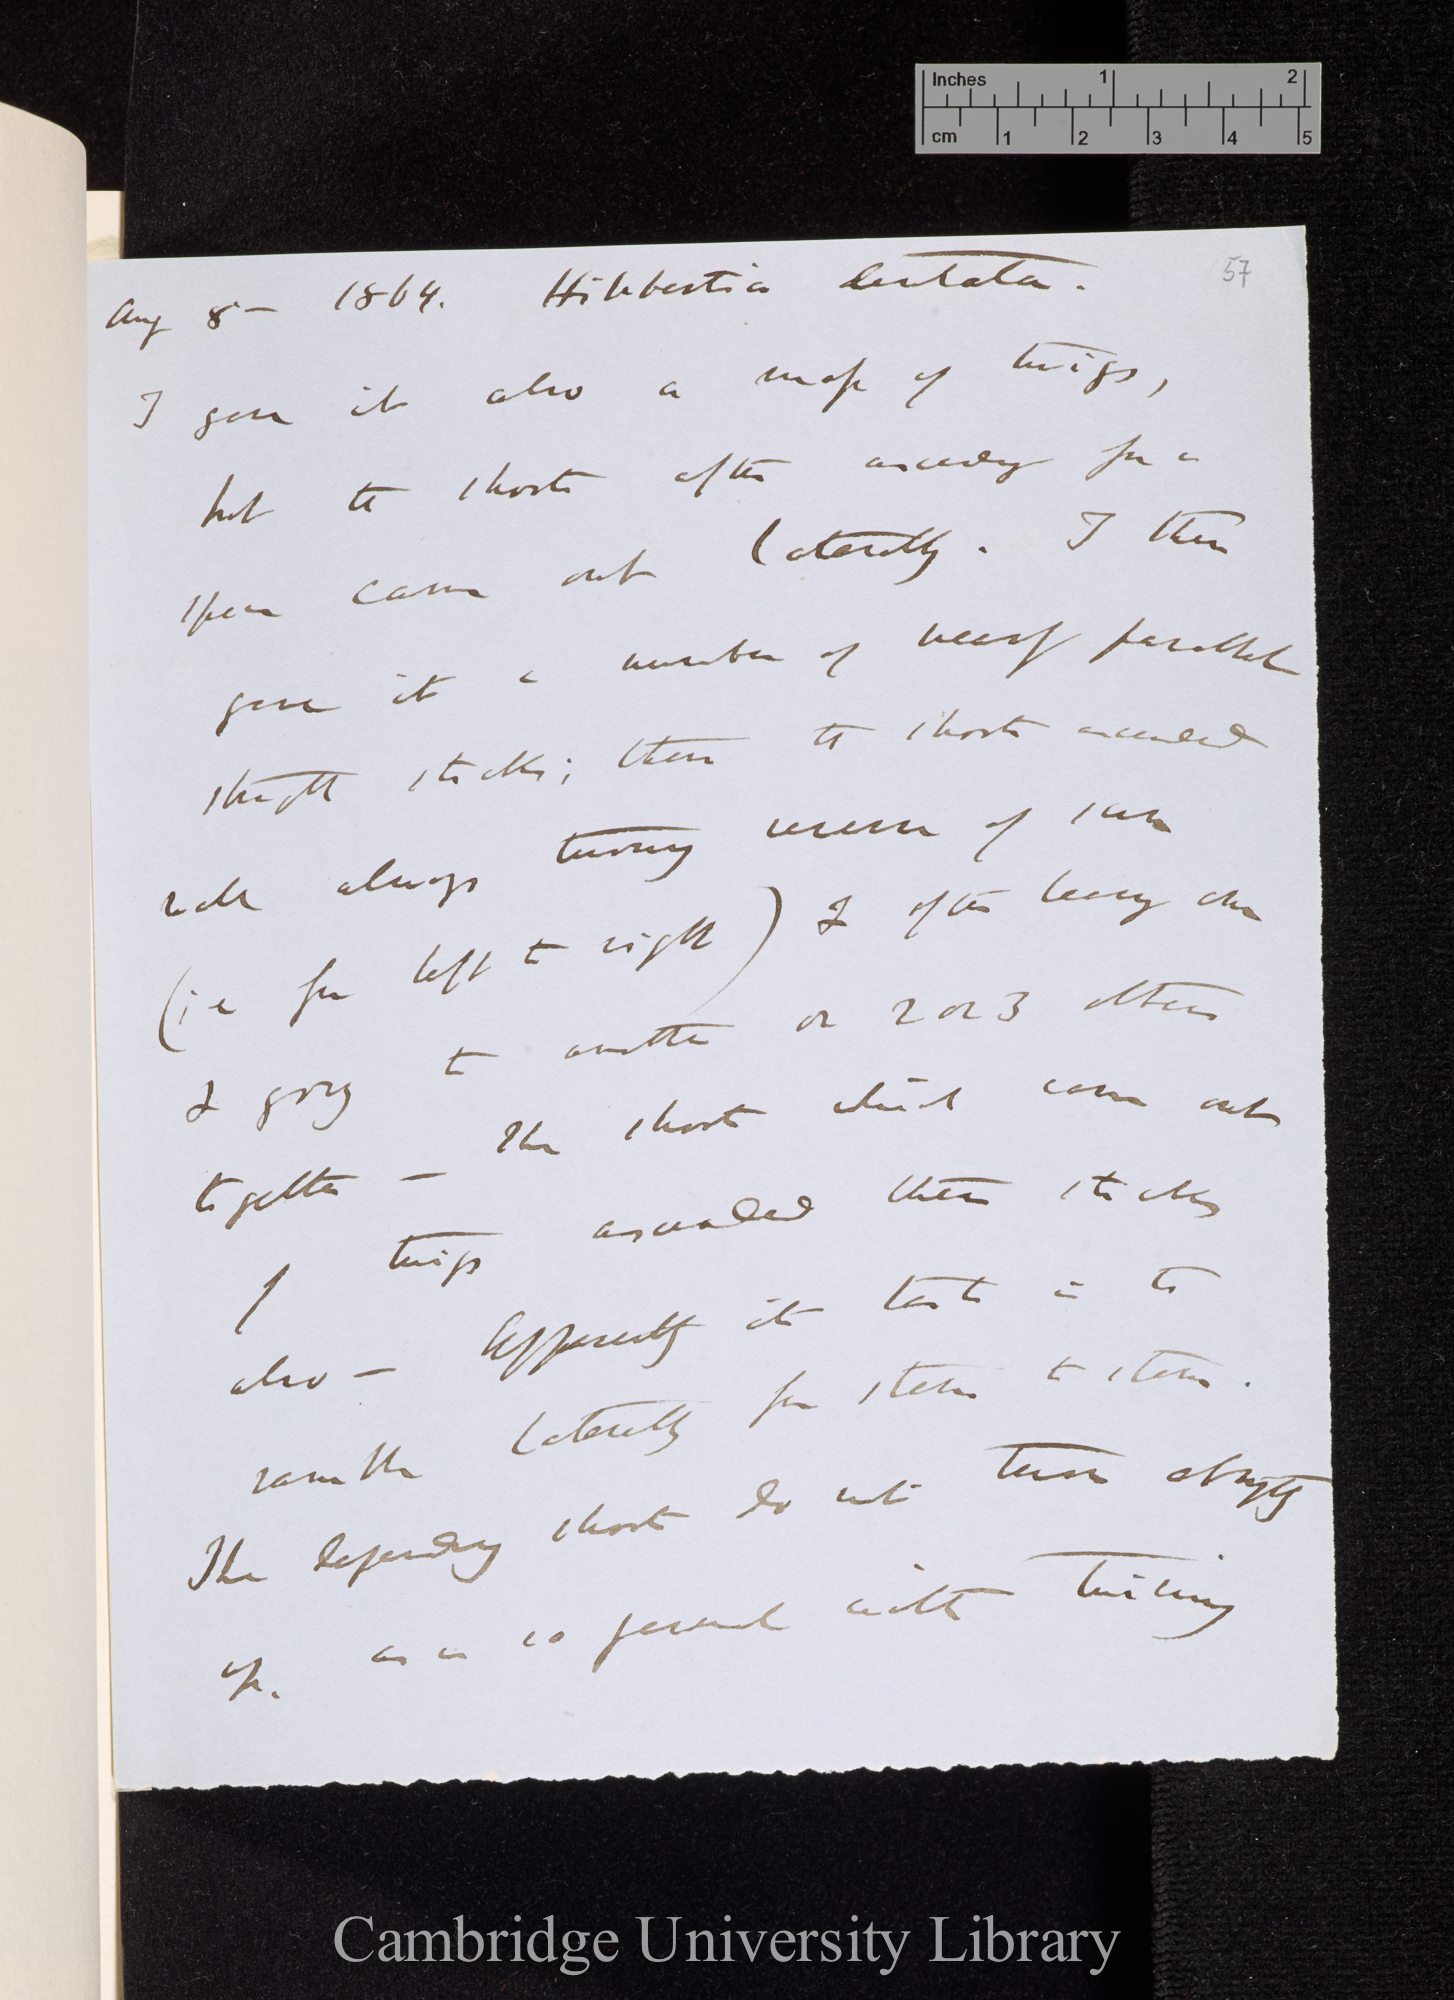 Inches 1 2
cm 1 2 3 4 5
57
Aug 8 — 1864. Hibbertia dentata.
I gave it also a mass of twigs,
but the shoots after ascending for a
span came out laterally. I then
gave it a number of nearly parallel
straight sticks; then the shoots ascended
well always turning reverse of sun
(i e from left to right) & after leaving one
& going to another or 2 or 3 others
together — The shoots which came out
of twigs ascended these sticks
also — Apparently it tends to
ramble laterally from stem to stem.
The depending shoots do not turn abruptly
up. as is so general with twining
Cambridge University Library